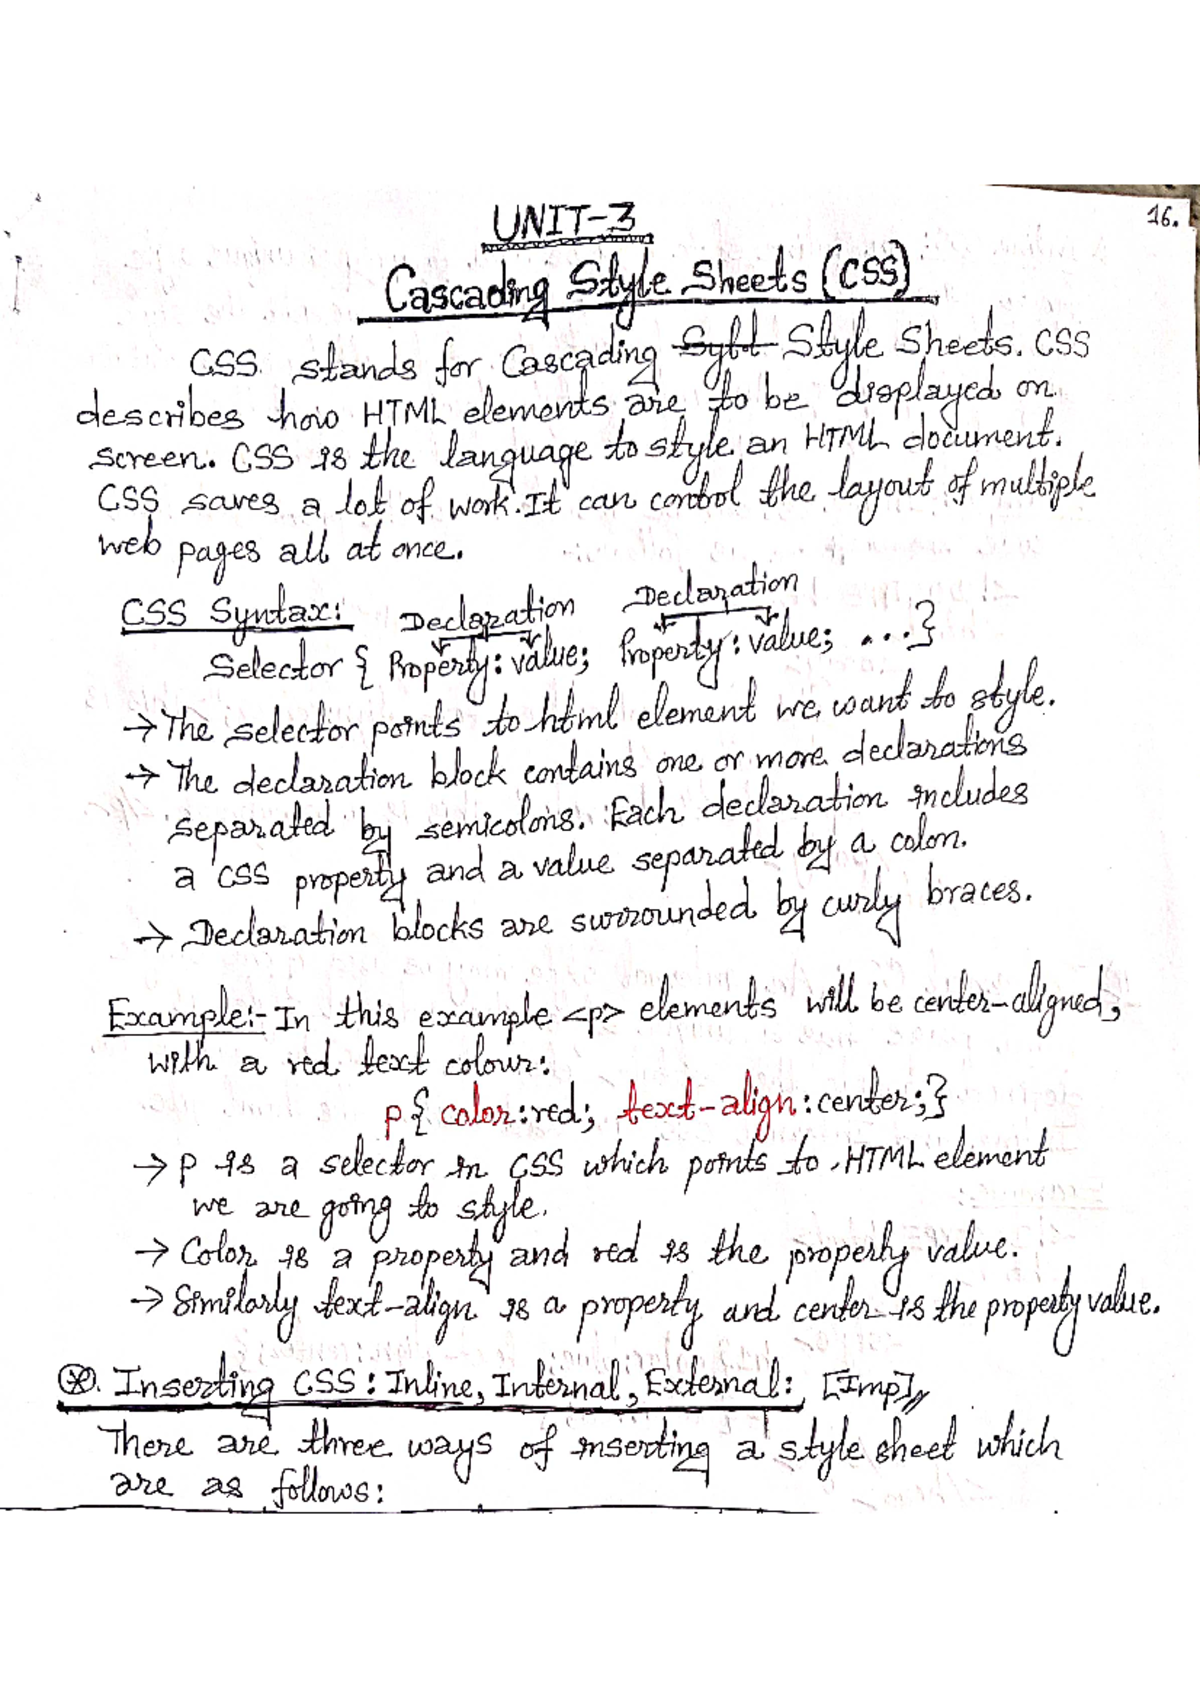 16.
UNIT-3
Cascading Style Sheets (CSS)
CSS stands for Cascading Style Sheets. CSS
describes how HTML elements are to be displayed on
screen. CSS is the language to style an HTML document.
CSS saves a lot of work. It can control the layout of multiple
web pages all at once.
CSS Syntax: Declaration Declaration
Selector { Property: value; Property: value; ...}
→ The selector points to html element we want to style.
→ The declaration block contains one or more declarations
separated by semicolons. Each declaration includes
a CSS property and a value separated by a colon.
→ Declaration blocks are surrounded by curly braces.
Example:- In this example <p> elements will be center-aligned,
with a red text colour:
p{ color:red; text-align:center;}
→ p is a selector in CSS which points to HTML element
we are going to style.
→ Color is a property and red is the property value.
→ Similarly text-align is a property and center is the property value.
⊛. Inserting CSS: Inline, Internal, External: [Imp]
There are three ways of inserting a style sheet which
are as follows: